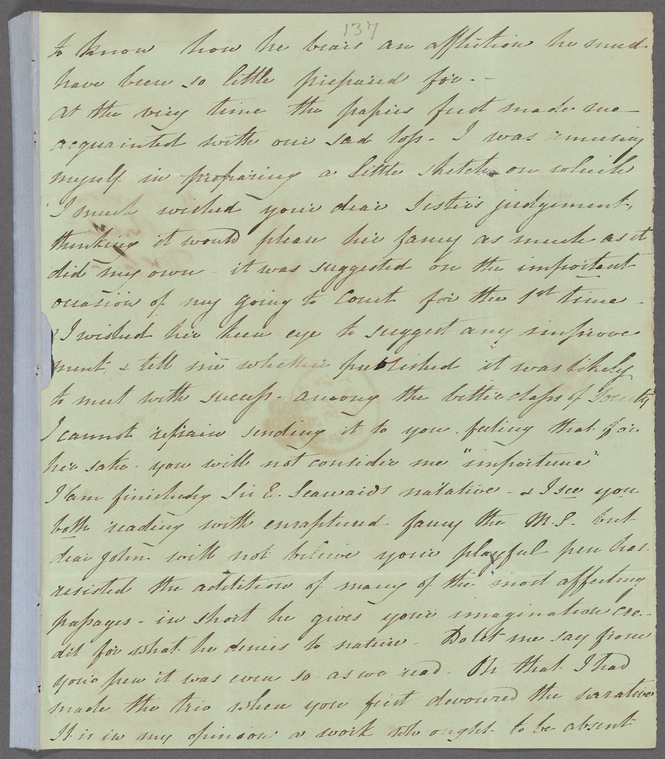 137
to know how he bears an affliction he must
have been so little prepared for. -
at the very time the papers first made me
acquainted with our sad loss - I was amusing
myself in preparing a little sketch on which
I much wished your dear Sister's judgement,
thinking it would please her fancy as much as it
did my own - it was suggested on the important
occasion of my going to Court for the 1st time -
I wished her keen eye to suggest any improve
ment & tell me whether published it was likely
to meet with success - among the better class of Society
I cannot refrain sending it to you, feeling that for
her sake - you will not consider me "importune"
I am finishing Sir E. Seawards naritive - & I see you
both reading with enraptured fancy the M.S. but
dear John will not believe your playful pen has
resisted the addition of many of the most affecting
passages - in short he gives your imagination cre-
dit for what he denies to nature - Do let me say from
your pen it was even so as we read. Oh that I had
made the trio when you first devoured the narative
It is in my opinion a work who ought to be absent